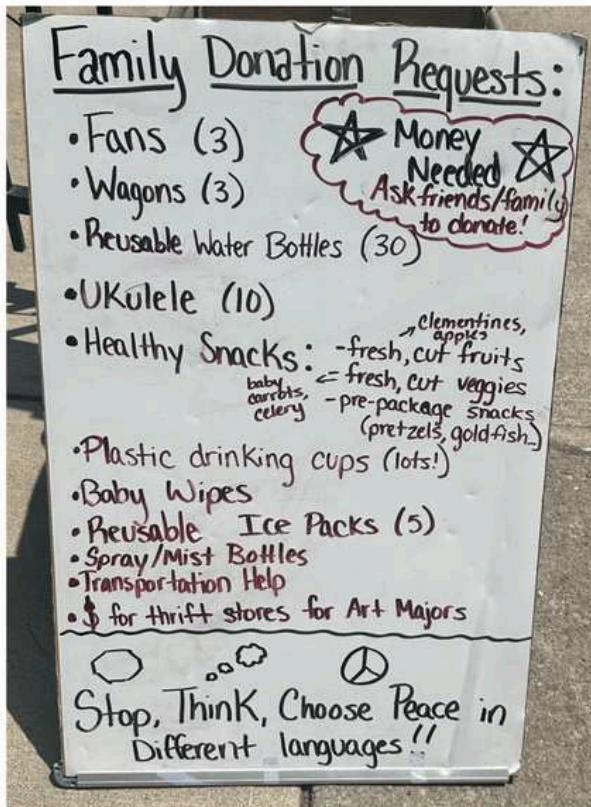 Family Donation Requests:
• Fans (3)
Money
Needed
Ask friends/family
to donate!
• Wagons (3)
• Reusable Water Bottles (30)
• Ukulele (10)
• Healthy Snacks: - fresh, cut fruits
clementines,
apples
- fresh, cut veggies
baby
carrots,
celery
- pre-package snacks
(pretzels, goldfish...)
• Plastic drinking cups (lots!)
• Baby Wipes
• Reusable Ice Packs (5)
• Spray/Mist Bottles
• Transportation Help
• $ for thrift stores for Art Majors
Stop, Think, Choose Peace in
Different languages!!